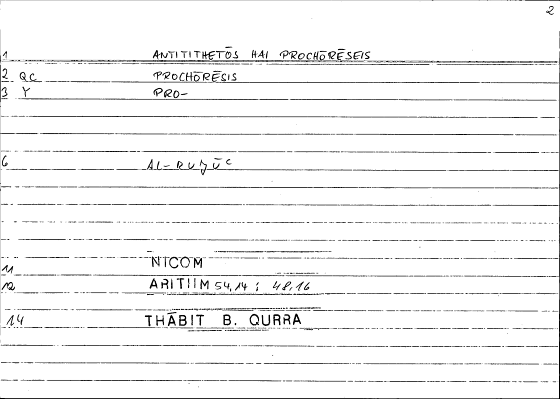 2
1 ANTITITHETŌS HAI PROCHŌRĒSEIS
2 QC PROCHŌRĒSIS
3 Y PRO-
6 AL-RUǦŪʿ
11 NICOM
12 ARITIIM 54,14 ; 48,16
14 THĀBIT B. QURRA